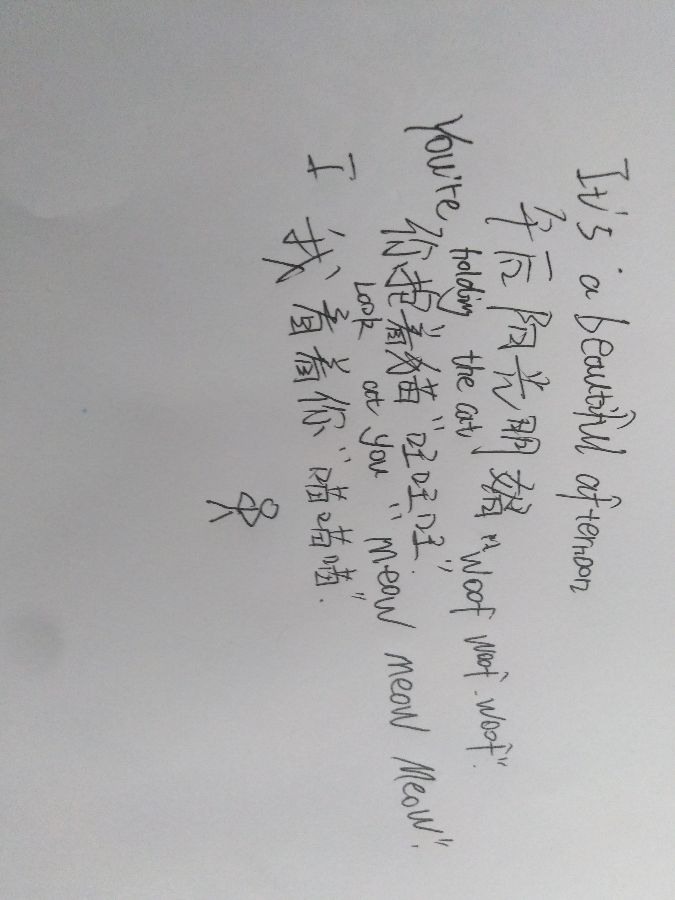 It's a beautiful afternoon
午后阳光明媚
You're holding the cat "woof woof woof".
你抱着猫"旺旺旺".
I Look at you "meow meow Meow".
我看着你"喵喵喵".